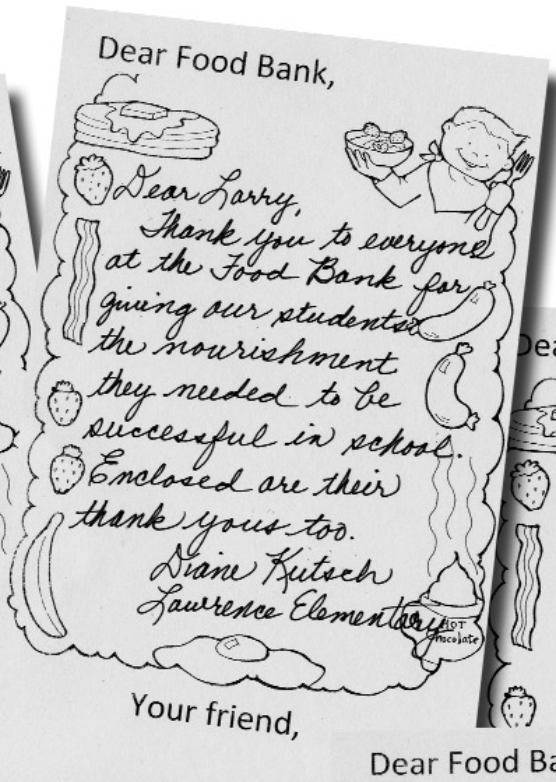 Dear Food Bank,
Dear Larry,
Thank you to everyone
at the Food Bank for
giving our students
the nourishment
they needed to be
successful in school.
Enclosed are their
thank yous too.
Diane Kutsch
Lawrence Elementary
HOT
Chocolate
Your friend,
Dea
Dear Food Ba